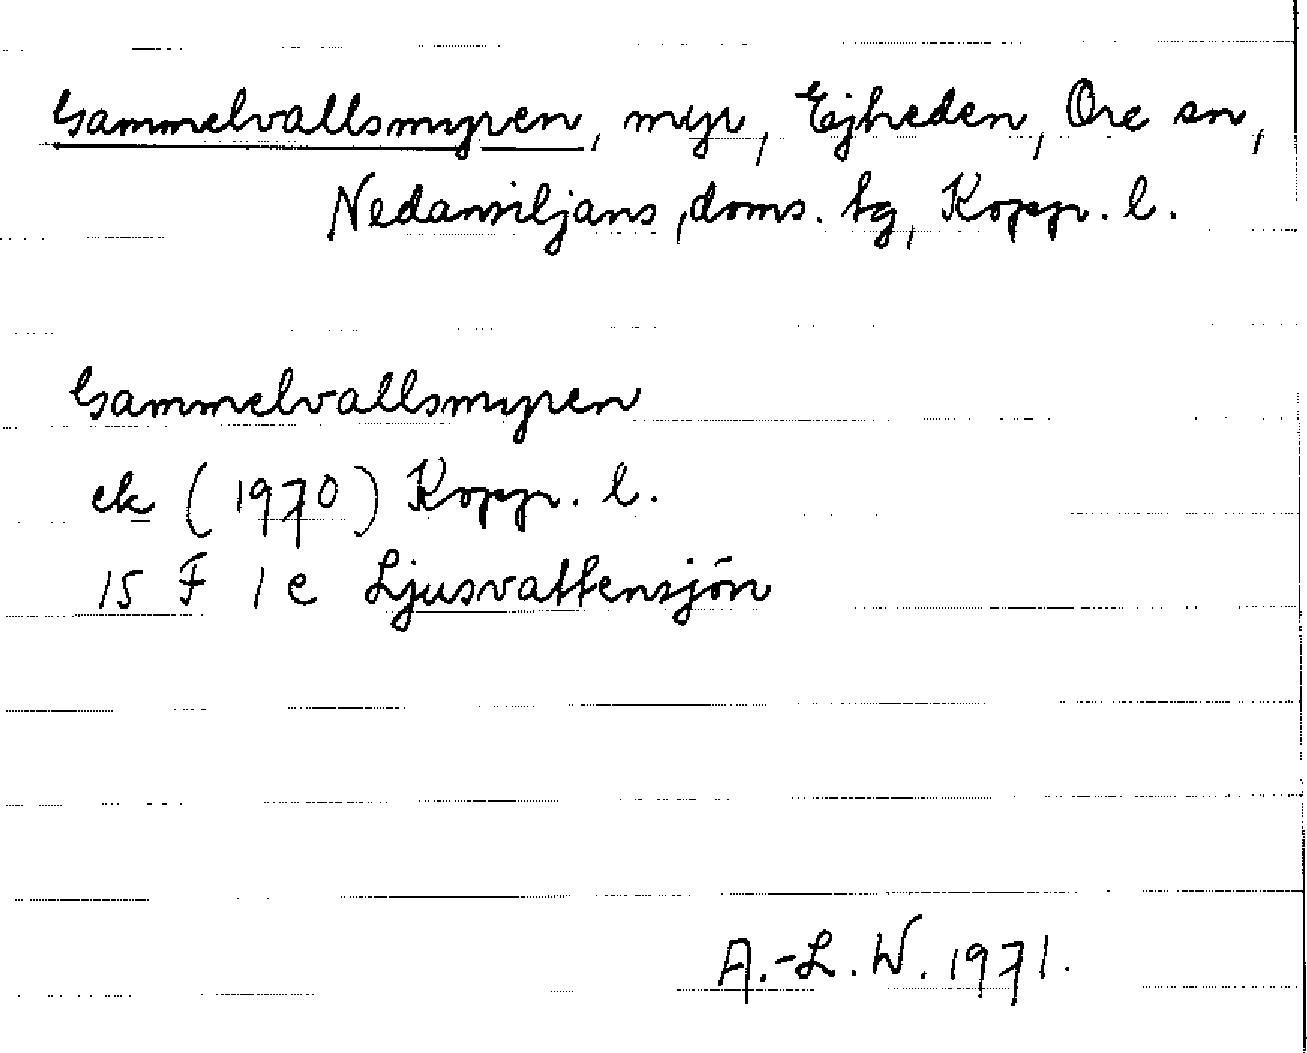 Gammelvallsmyren, myr, Ejheden, Ore sn,
Nedansiljans, doms. tg, Kopp. l.
Gammelvallsmyren
ek (1970) Kopp. l.
15 F 1 e Ljusvattensjön
A.-L. W. 1971.